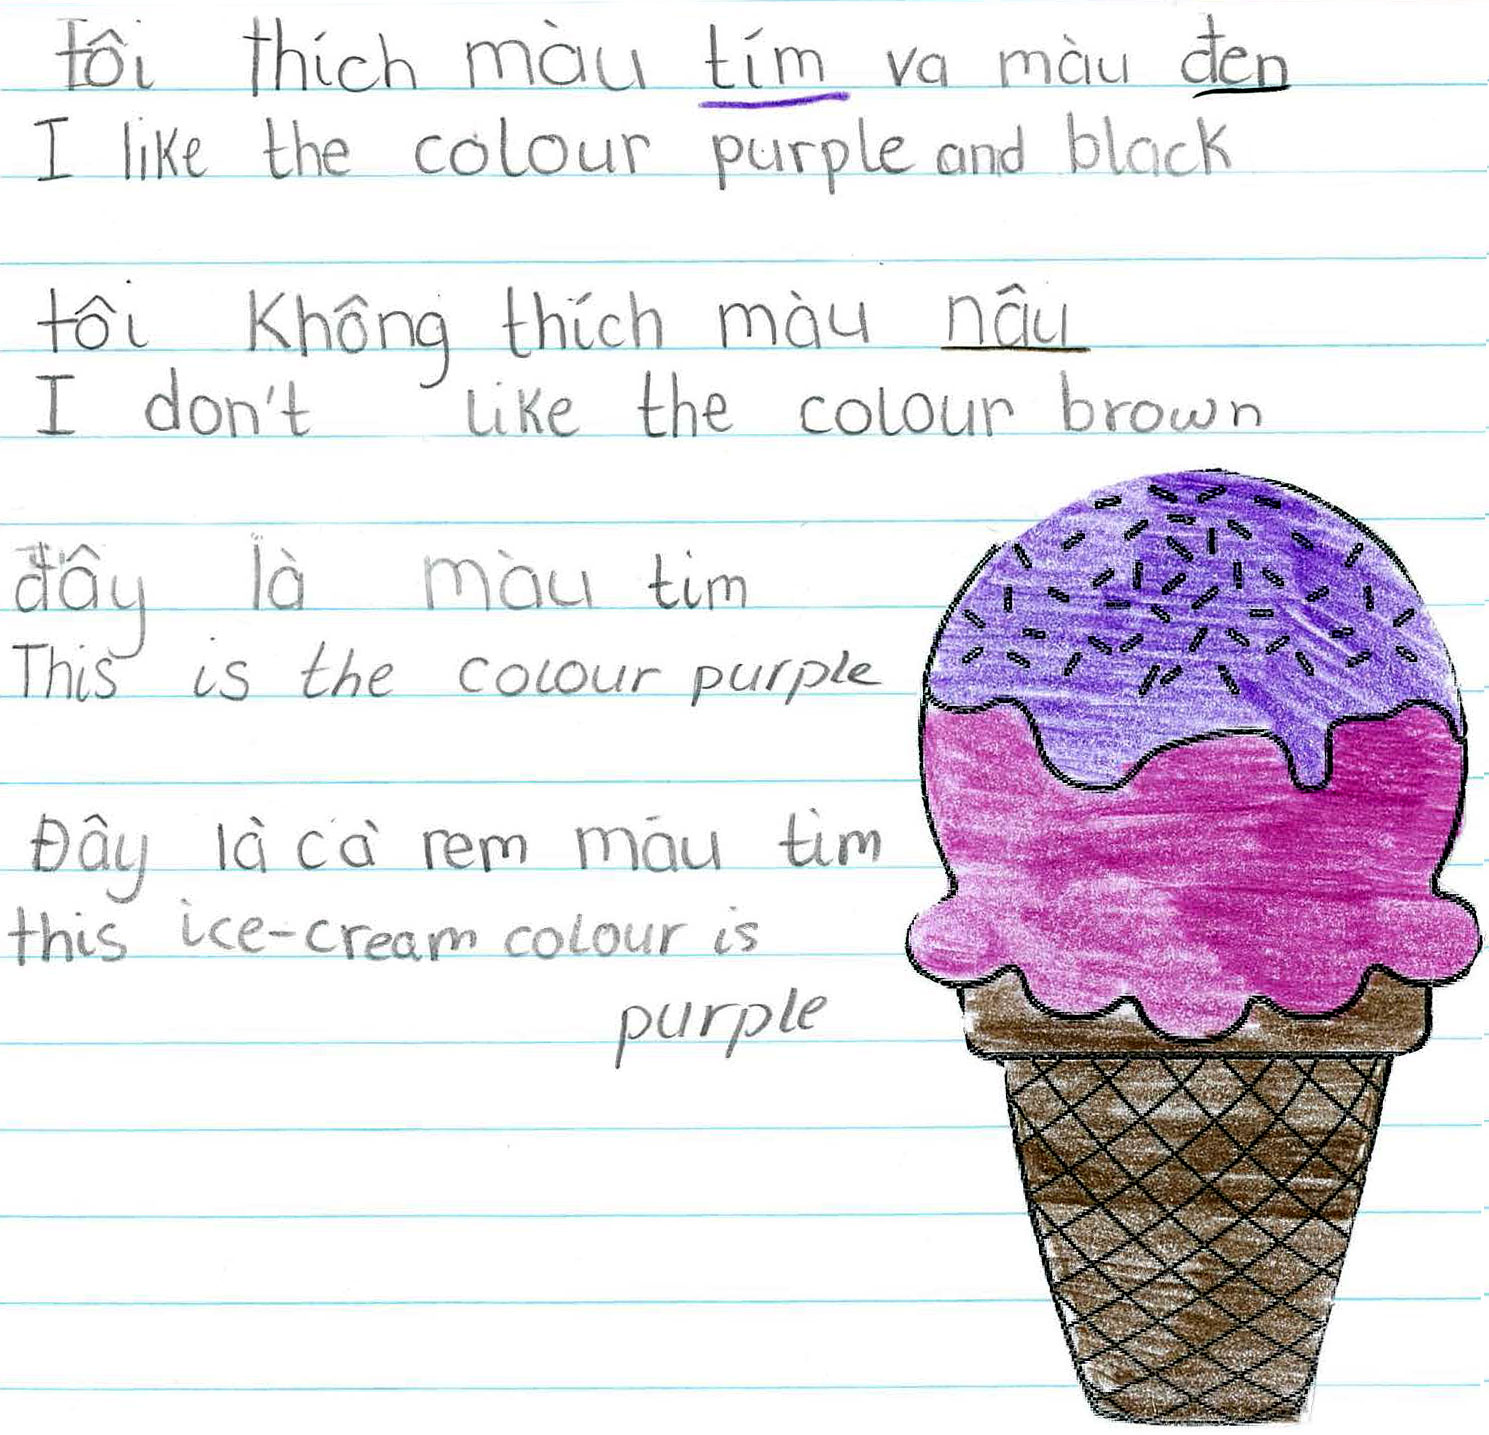 tôi thích màu tím va màu đen
I like the colour purple and black
tôi Không thích màu nâu
I don't like the colour brown
đây là màu tim
This is the colour purple
Đây là cà rem màu tìm
this ice-cream colour is
purple